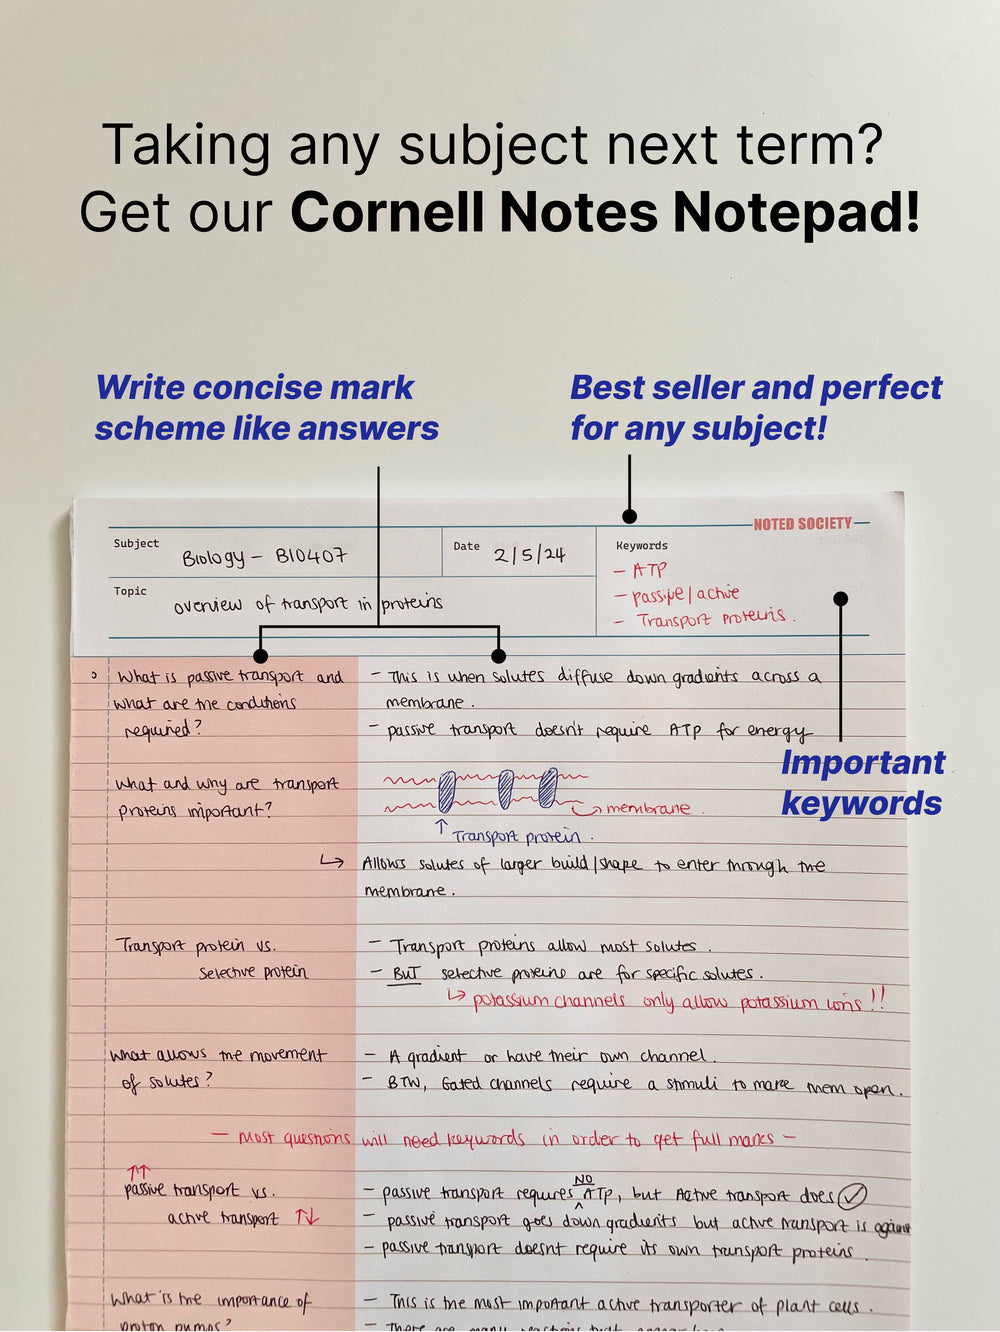 Taking any subject next term?
Get our Cornell Notes Notepad!
Write concise mark
scheme like answers
Best seller and perfect
for any subject!
NOTED SOCIETY
Subject Biology - BIO407
Date 2/5/24
Keywords
- ATP
- passive/active
- Transport proteins.
Topic overview of transport in proteins
Important
keywords
What is passive transport and
what are the conditions
required?
- This is when solutes diffuse down gradients across a
membrane.
- passive transport doesn't require ATP for energy
What and why are transport
proteins important?
membrane
↑ Transport protein.
↳ Allows solutes of larger build/shape to enter through the
membrane.
Transport protein vs.
selective protein
- Transport proteins allow most solutes.
- BUT selective proteins are for specific solutes.
↳ potassium channels only allow potassium ions!!
What allows the movement
of solutes?
- A gradient or have their own channel.
- BTW, Gated channels require a stimuli to make them open.
- Most questions will need keywords in order to get full marks -
↑↑
passive transport vs.
active transport ↑↓
- passive transport requires NO ATP, but Active transport does
- passive transport goes down gradients but active transport is against
- passive transport doesnt require its own transport proteins
What is the importance of
proton pumps?
- This is the most important active transporter of plant cells.
- There are many reactions that